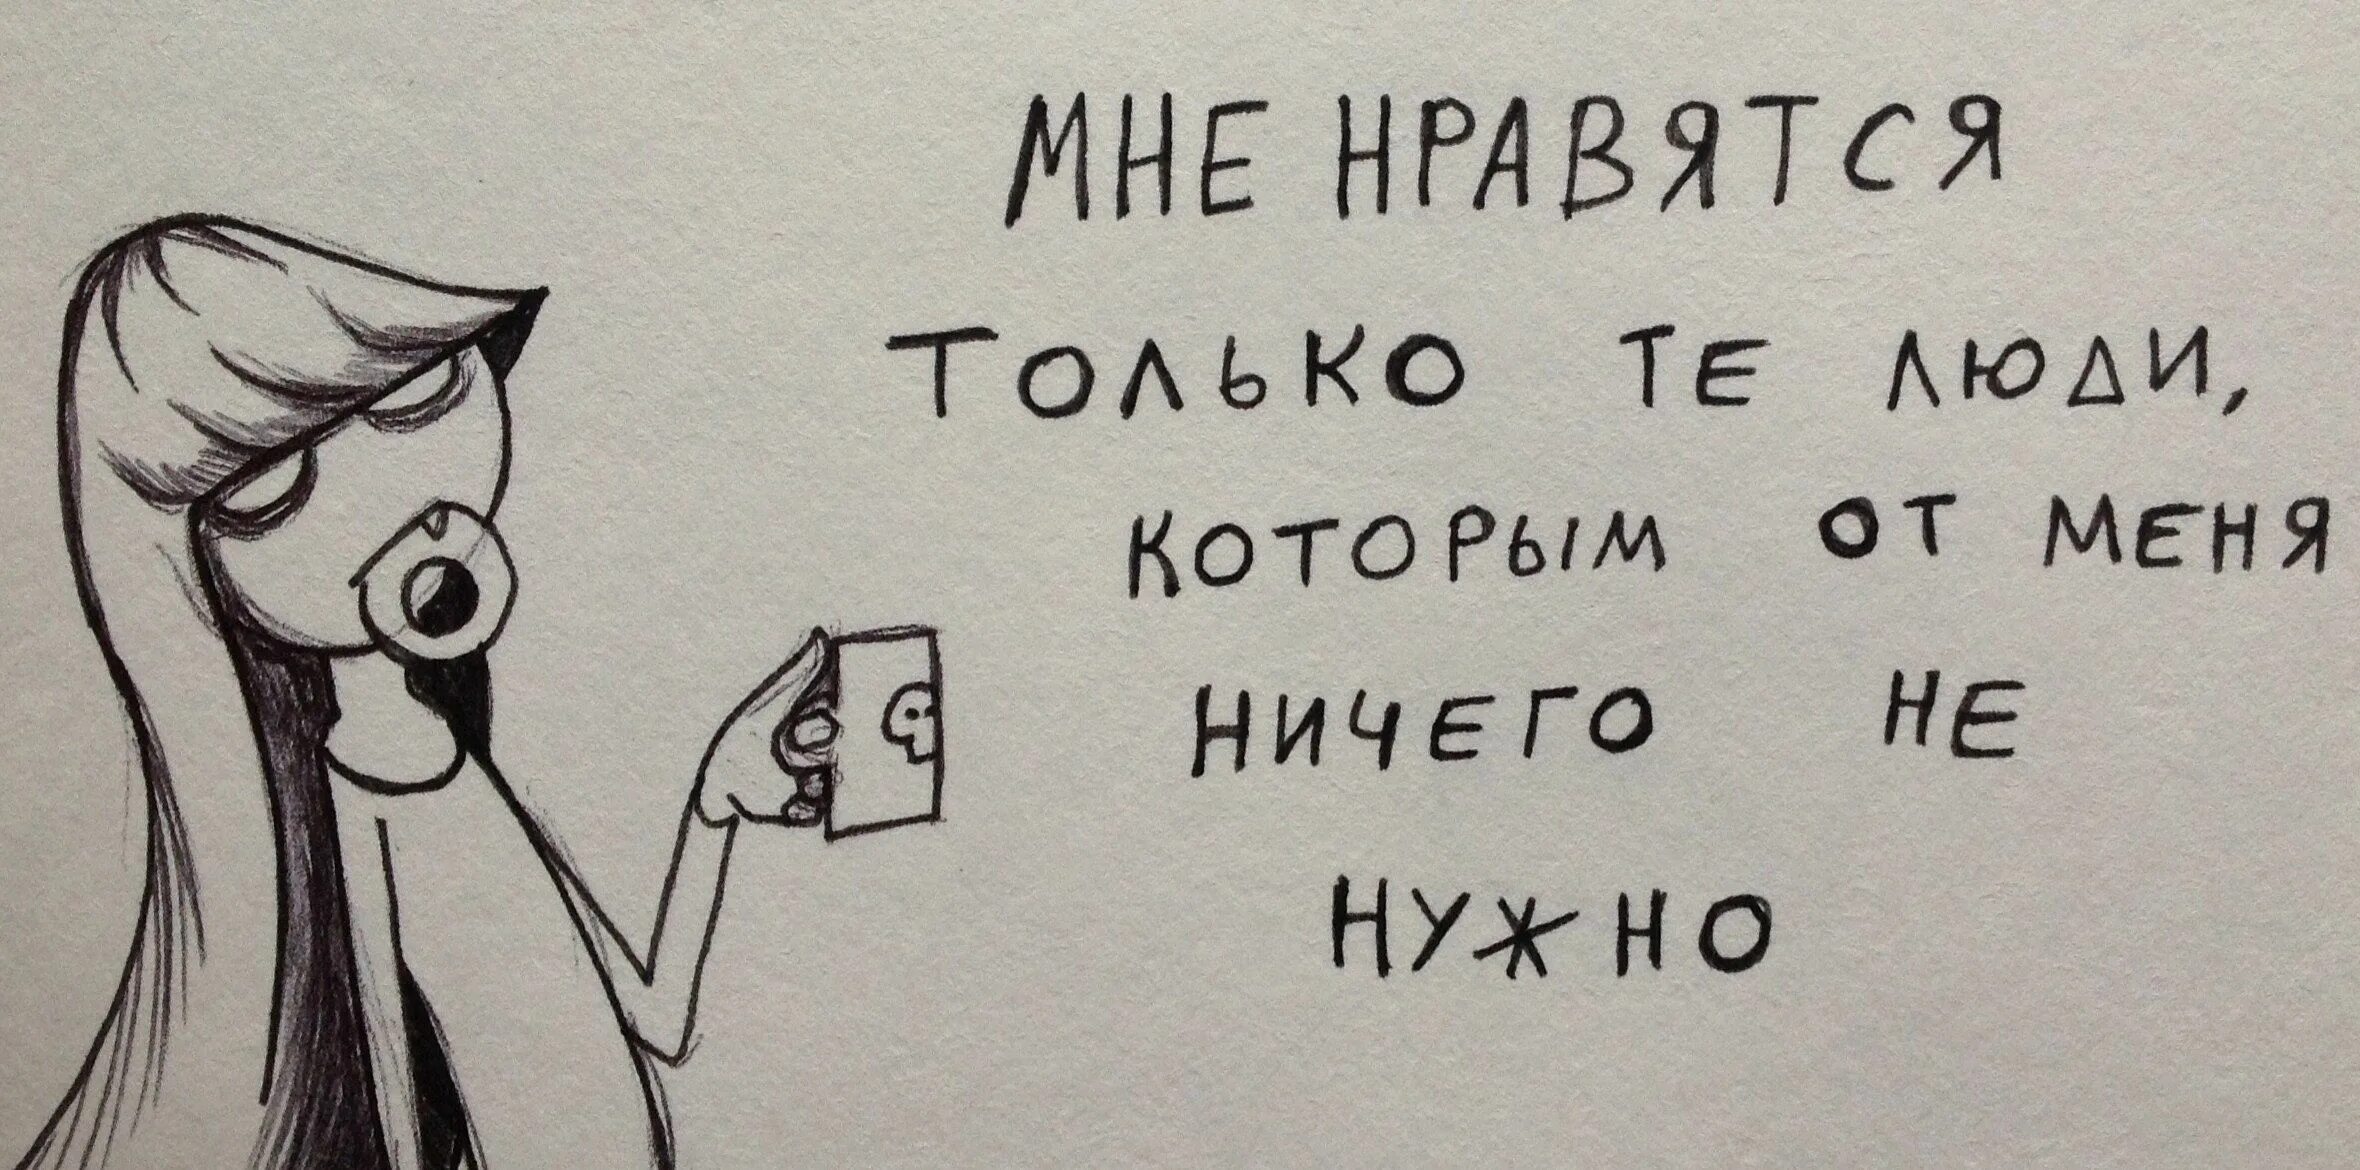 МНЕ НРАВЯТСЯ
ТОЛЬКО ТЕ ЛЮДИ,
КОТОРЫМ ОТ МЕНЯ
НИЧЕГО НЕ
НУЖНО